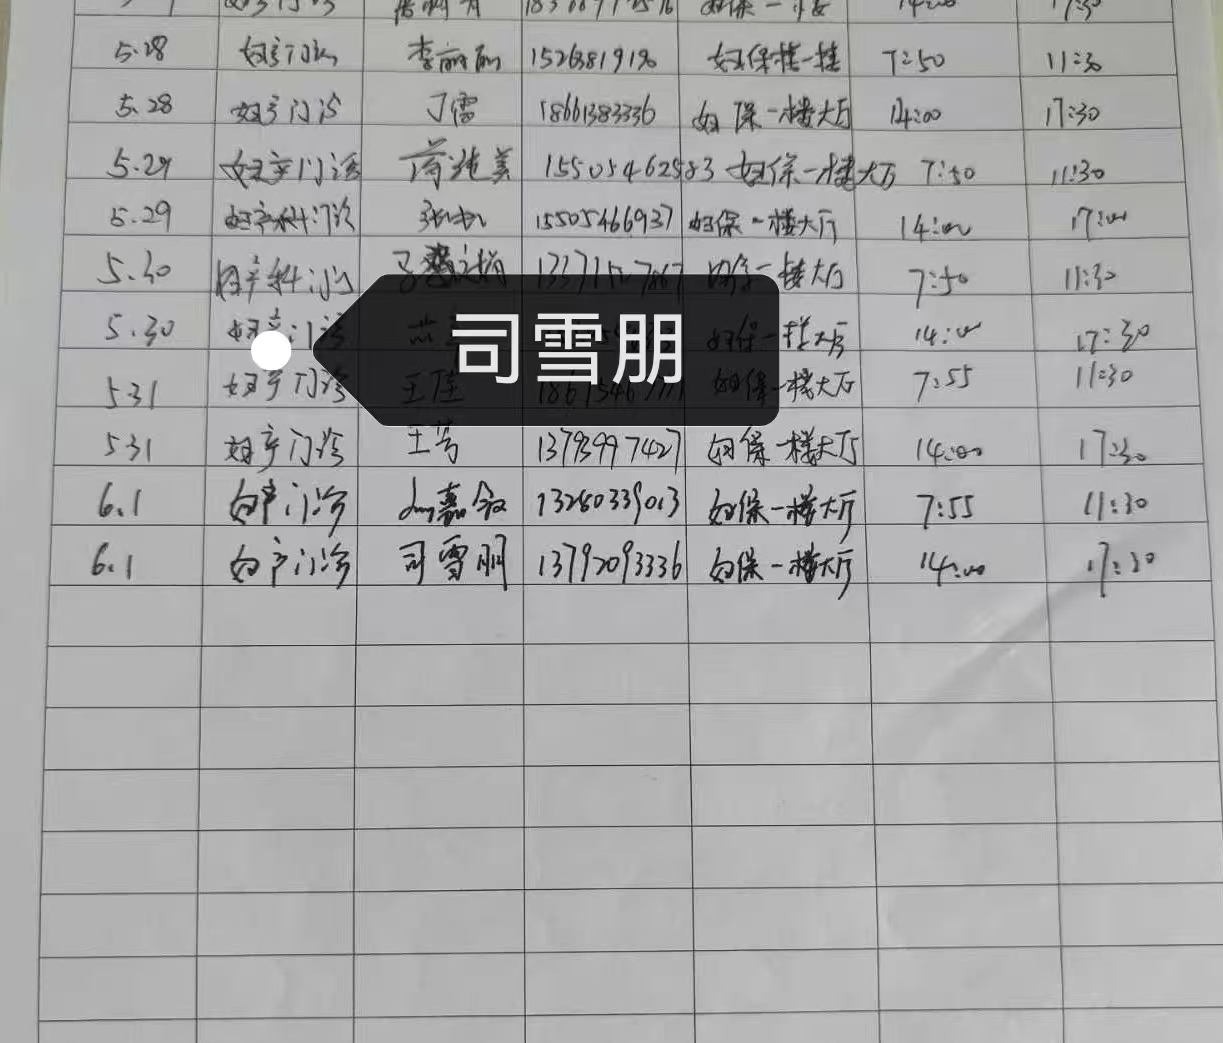 5.28 妇产门诊 李丽丽 妇保楼一楼 7:50 11:30
5.28 妇产门诊 丁霞 18661383336 妇保一楼大厅 14:00 17:30
5.29 妇产门诊 15505462583 妇保一楼大厅 7:50 11:30
5.29 妇产科门诊 15505466937 妇保一楼大厅 14:00 17:00
5.30 妇产科门诊 妇保一楼大厅 7:50 11:30
5.30 妇产门诊 妇保一楼大厅 14:00 17:30
司雪朋
5.31 妇产门诊 王佳 妇保一楼大厅 7:55 11:30
5.31 妇产门诊 王芳 13793997427 妇保一楼大厅 14:00 17:30
6.1 妇产门诊 13280339013 妇保一楼大厅 7:55 11:30
6.1 妇产门诊 司雪朋 13792093336 妇保一楼大厅 14:00 17:30